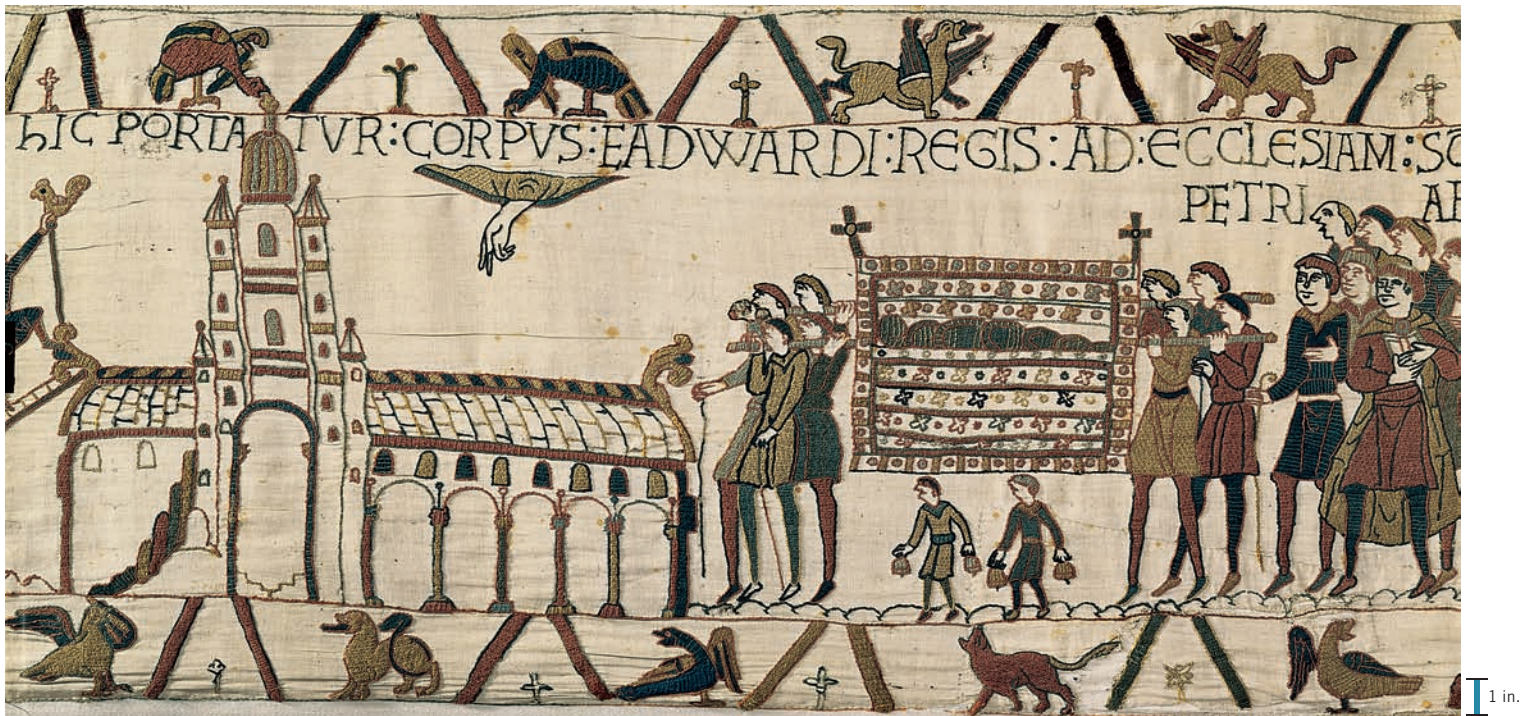 hIC PORTATVR:CORPVS:EADWARDI:REGIS:AD:ECCLESIAM:SC̄
PETRI AP
1 in.